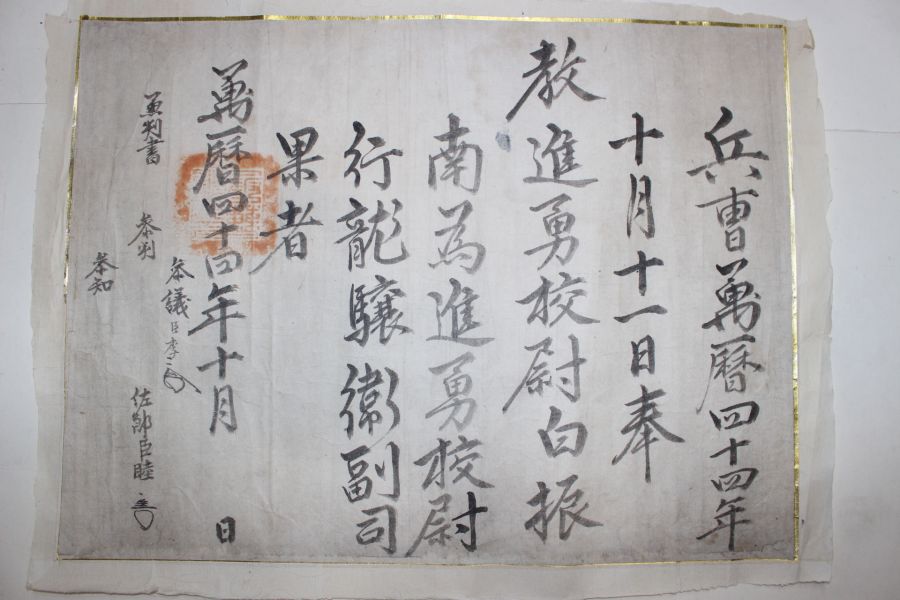 兵曺萬曆四十四年
十月十一日奉
教進勇校尉白振
南為進勇校尉
行龍驤衛副司
果者
萬曆四十四年十月 日
兼判書 參判 參議臣李 參知 佐郎臣睦